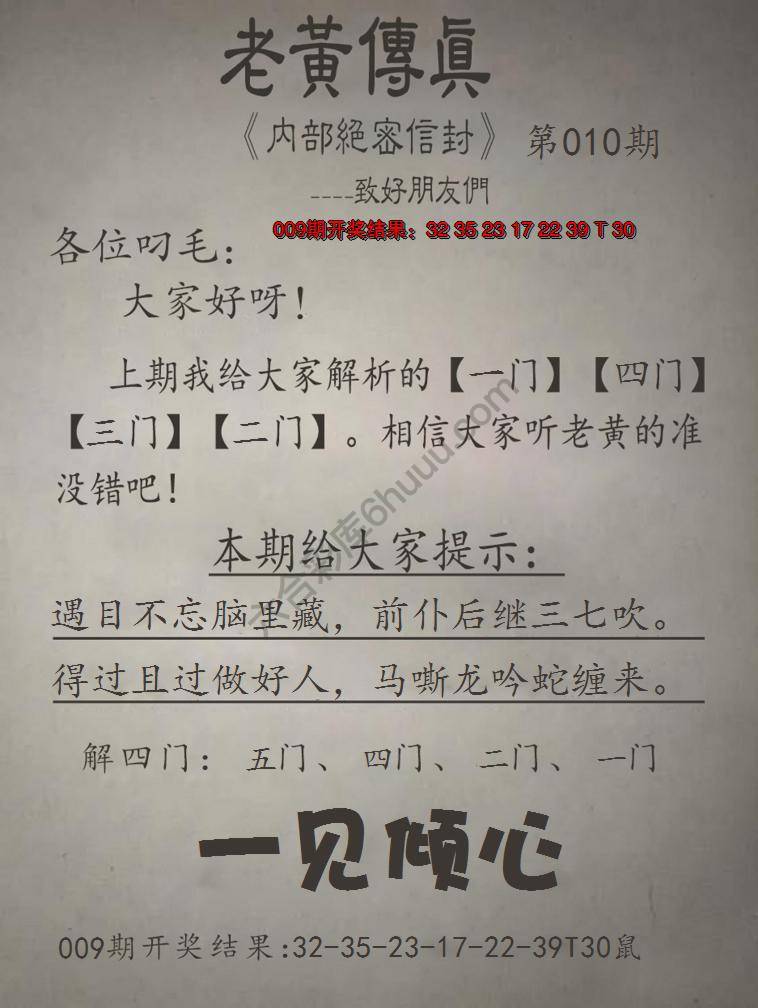 老黃傳眞
《内部絕密信封》 第010期
----致好朋友們
009期开奖结果：32 35 23 17 22 39 T 30
各位叼毛：
大家好呀！
上期我给大家解析的【一门】【四门】
【三门】【二门】。相信大家听老黄的准
没错吧！
本期给大家提示：
遇目不忘脑里藏，前仆后继三七吹。
得过且过做好人，马嘶龙吟蛇缠来。
解四门： 五门、 四门、 二门、 一门
一见倾心
009期开奖结果:32-35-23-17-22-39T30鼠
六合彩库6huuu.com